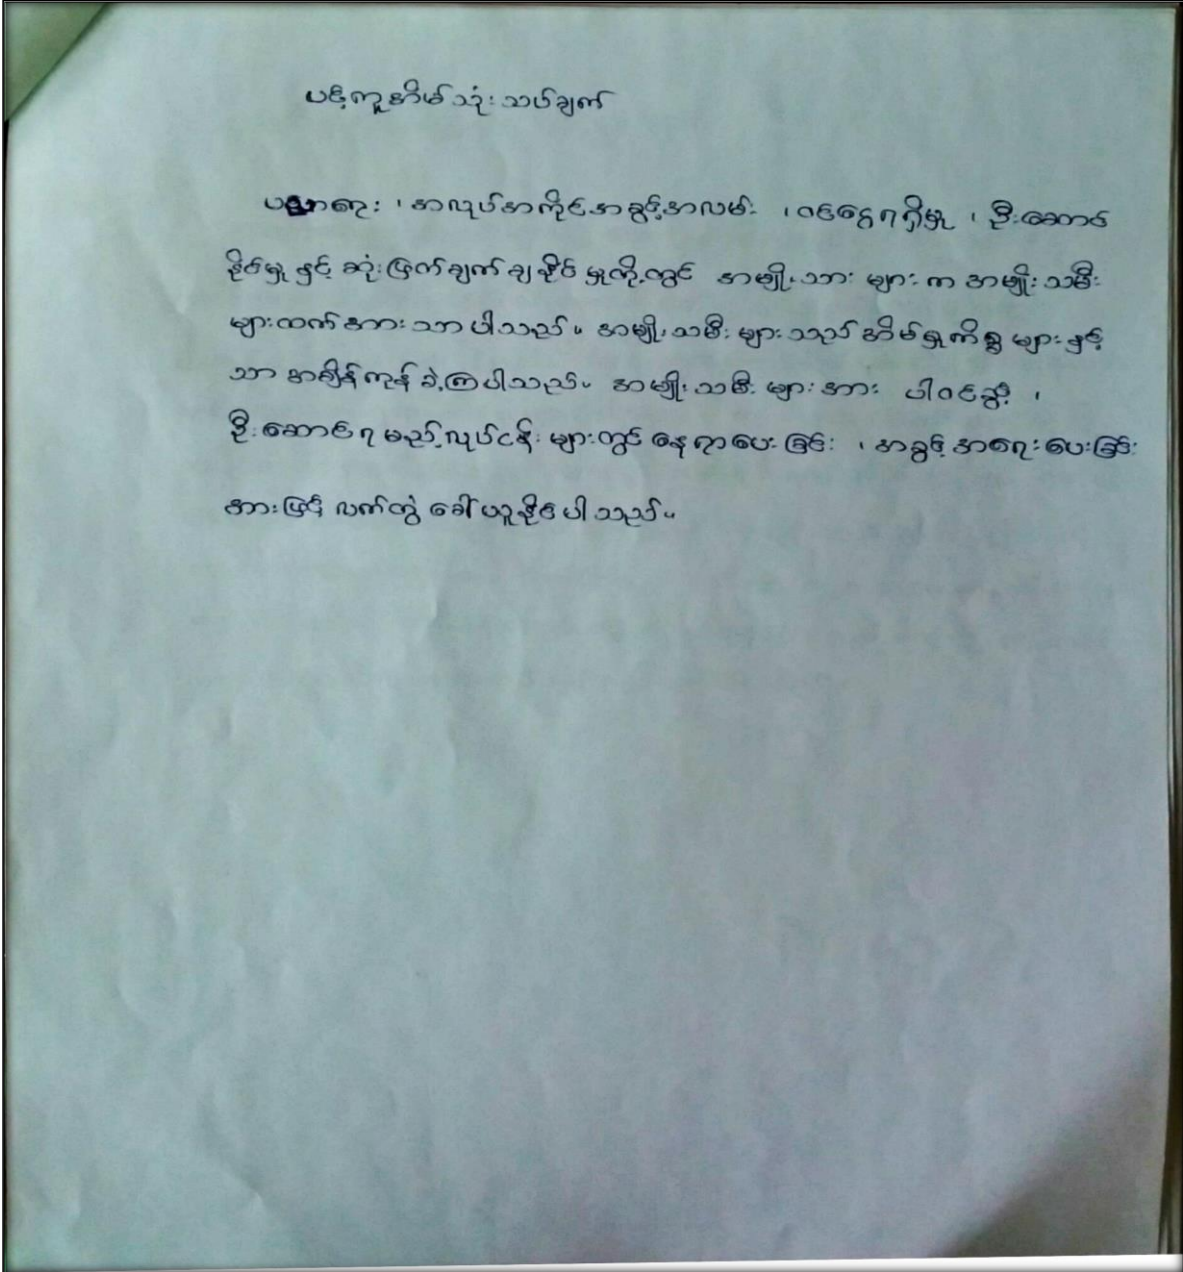 ပင့်ကူအိမ်သုံးသပ်ချက်
ပညာရေး ၊ အလုပ်အကိုင်အခွင့်အလမ်း ၊ ဝင်ငွေရရှိမှု ၊ ဦးဆောင်
နိုင်မှုနှင့် ဆုံးဖြတ်ချက်ချနိုင်မှုတို့တွင် အမျိုးသားများက အမျိုးသမီး
များထက်အားသာပါသည်။ အမျိုးသမီးများသည် အိမ်မှုကိစ္စများနှင့်
သာ အချိန်ကုန်ခဲ့ကြပါသည်။ အမျိုးသမီးများအား ပါဝင်ခွင့် ၊
ဦးဆောင်ရမည့်လုပ်ငန်းများတွင် နေရာပေးခြင်း ၊ အခွင့်အရေးပေးခြင်း
အားဖြင့် လက်တွဲခေါ်ယူနိုင်ပါသည်။